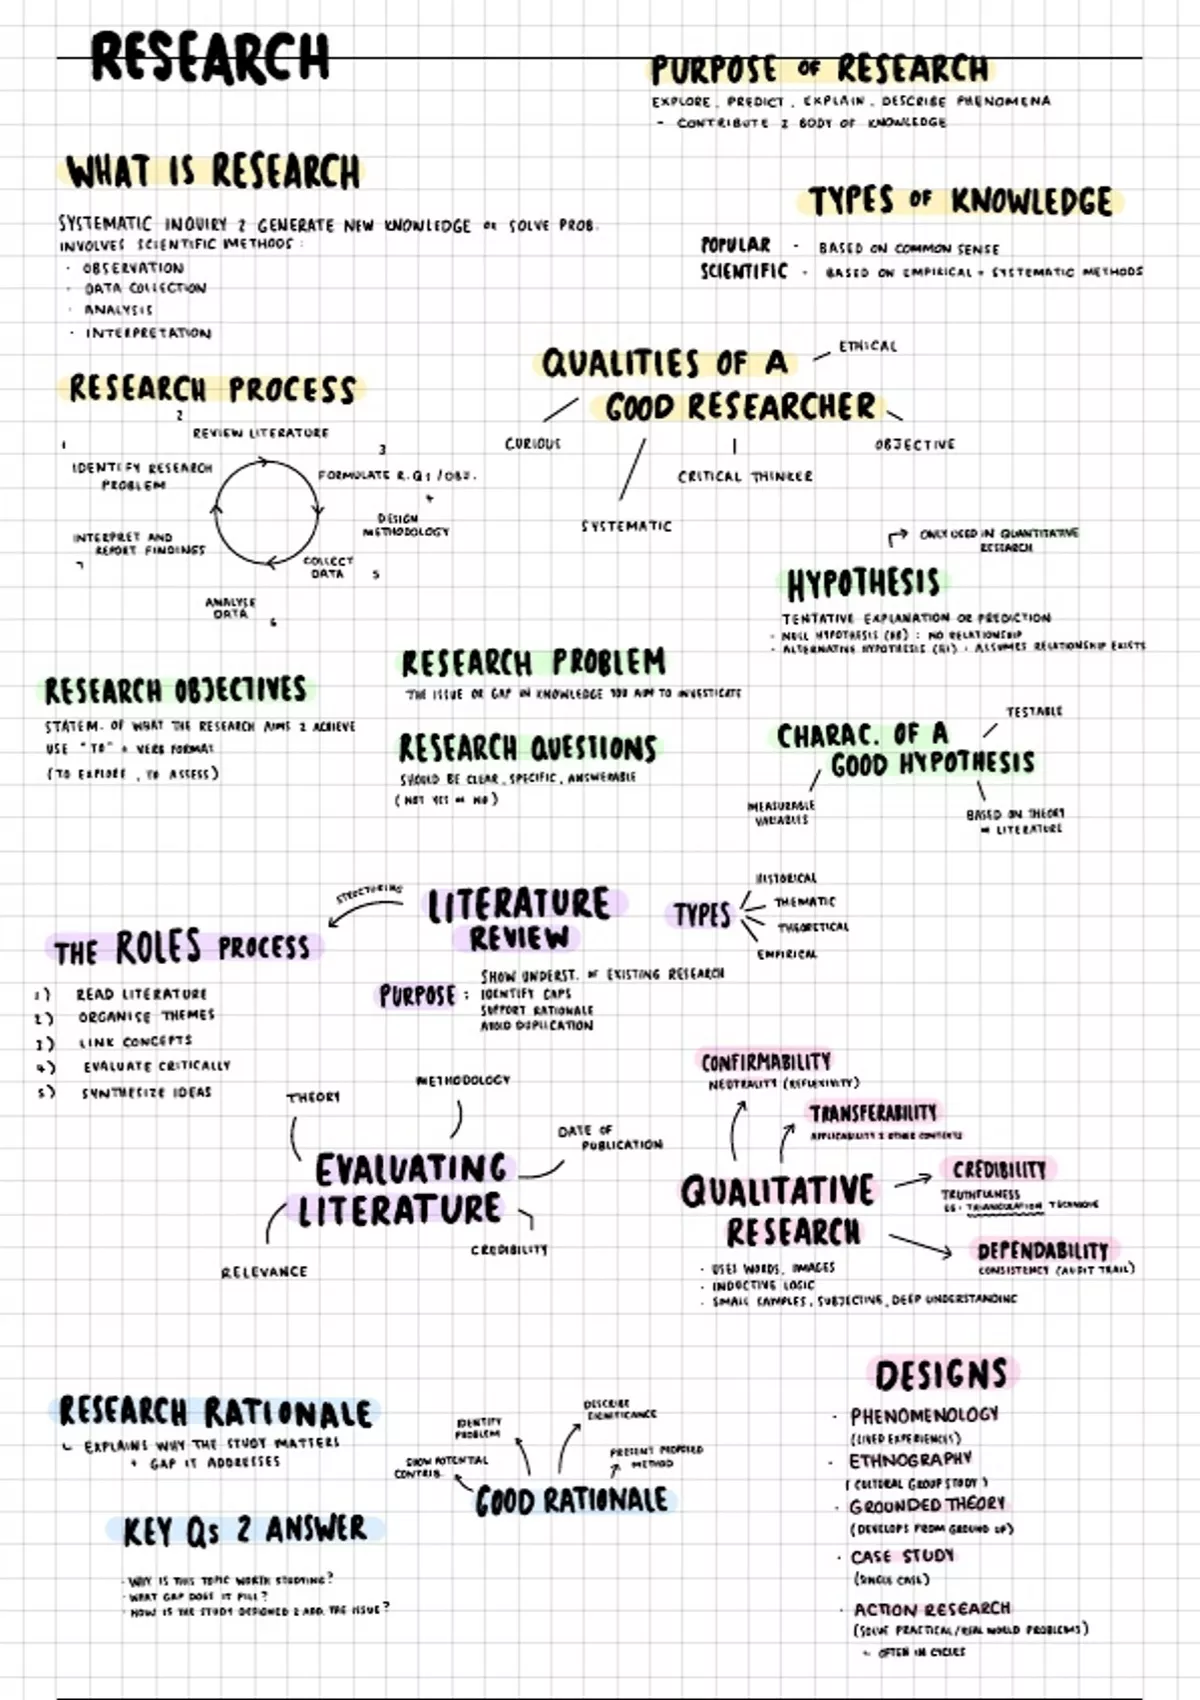 RESEARCH
PURPOSE OF RESEARCH
EXPLORE, PREDICT, EXPLAIN, DESCRIBE PHENOMENA
- CONTRIBUTE 2 BODY OF KNOWLEDGE
WHAT IS RESEARCH
SYSTEMATIC INQUIRY 2 GENERATE NEW KNOWLEDGE OR SOLVE PROB.
INVOLVES SCIENTIFIC METHODS:
· OBSERVATION
· DATA COLLECTION
· ANALYSIS
· INTERPRETATION
TYPES OF KNOWLEDGE
POPULAR - BASED ON COMMON SENSE
SCIENTIFIC - BASED ON EMPIRICAL + SYSTEMATIC METHODS
QUALITIES OF A
GOOD RESEARCHER
ETHICAL
CURIOUS
SYSTEMATIC
CRITICAL THINKER
OBJECTIVE
RESEARCH PROCESS
1
IDENTIFY RESEARCH
PROBLEM
2
REVIEW LITERATURE
3
FORMULATE R.QS/OBJ.
4
DESIGN
METHODOLOGY
COLLECT
DATA 5
ANALYSE
DATA 6
INTERPRET AND
REPORT FINDINGS
7
ONLY USED IN QUANTITATIVE
RESEARCH
HYPOTHESIS
TENTATIVE EXPLANATION OR PREDICTION
- NULL HYPOTHESIS (H0): NO RELATIONSHIP
- ALTERNATIVE HYPOTHESIS (H1): ASSUMES RELATIONSHIP EXISTS
RESEARCH PROBLEM
THE ISSUE OR GAP IN KNOWLEDGE YOU AIM TO INVESTIGATE
RESEARCH OBJECTIVES
STATEM. OF WHAT THE RESEARCH AIMS 2 ACHIEVE
USE "TO" + VERB FORMAT
(TO EXPLORE, TO ASSESS)
RESEARCH QUESTIONS
SHOULD BE CLEAR, SPECIFIC, ANSWERABLE
(NOT YES OR NO)
CHARAC. OF A
GOOD HYPOTHESIS
TESTABLE
MEASURABLE
VARIABLES
BASED ON THEORY
OR LITERATURE
LITERATURE
REVIEW
STRUCTURING
THE ROLES PROCESS
1) READ LITERATURE
2) ORGANISE THEMES
3) LINK CONCEPTS
4) EVALUATE CRITICALLY
5) SYNTHESIZE IDEAS
TYPES
HISTORICAL
THEMATIC
THEORETICAL
EMPIRICAL
PURPOSE:
SHOW UNDERST. OF EXISTING RESEARCH
IDENTIFY GAPS
SUPPORT RATIONALE
AVOID DUPLICATION
EVALUATING
LITERATURE
THEORY
METHODOLOGY
DATE OF
PUBLICATION
CREDIBILITY
RELEVANCE
QUALITATIVE
RESEARCH
· USES WORDS, IMAGES
· INDUCTIVE LOGIC
· SMALL SAMPLES, SUBJECTIVE, DEEP UNDERSTANDING
CONFIRMABILITY
NEUTRALITY (REFLEXIVITY)
TRANSFERABILITY
APPLICABILITY 2 OTHER CONTEXTS
CREDIBILITY
TRUTHFULNESS
EG: TRIANGULATION TECHNIQUE
DEPENDABILITY
CONSISTENCY (AUDIT TRAIL)
RESEARCH RATIONALE
EXPLAINS WHY THE STUDY MATTERS
+ GAP IT ADDRESSES
KEY Qs 2 ANSWER
· WHY IS THIS TOPIC WORTH STUDYING?
· WHAT GAP DOES IT FILL?
· HOW IS THE STUDY DESIGNED 2 ADD. THE ISSUE?
GOOD RATIONALE
SHOW POTENTIAL
CONTRIB.
IDENTIFY
PROBLEM
DESCRIBE
SIGNIFICANCE
PRESENT PROPOSED
METHOD
DESIGNS
· PHENOMENOLOGY
(LIVED EXPERIENCES)
· ETHNOGRAPHY
(CULTURAL GROUP STUDY)
· GROUNDED THEORY
(DEVELOPS FROM GROUND UP)
· CASE STUDY
(SINGLE CASE)
· ACTION RESEARCH
(SOLVE PRACTICAL/REAL WORLD PROBLEMS)
OFTEN IN CYCLES